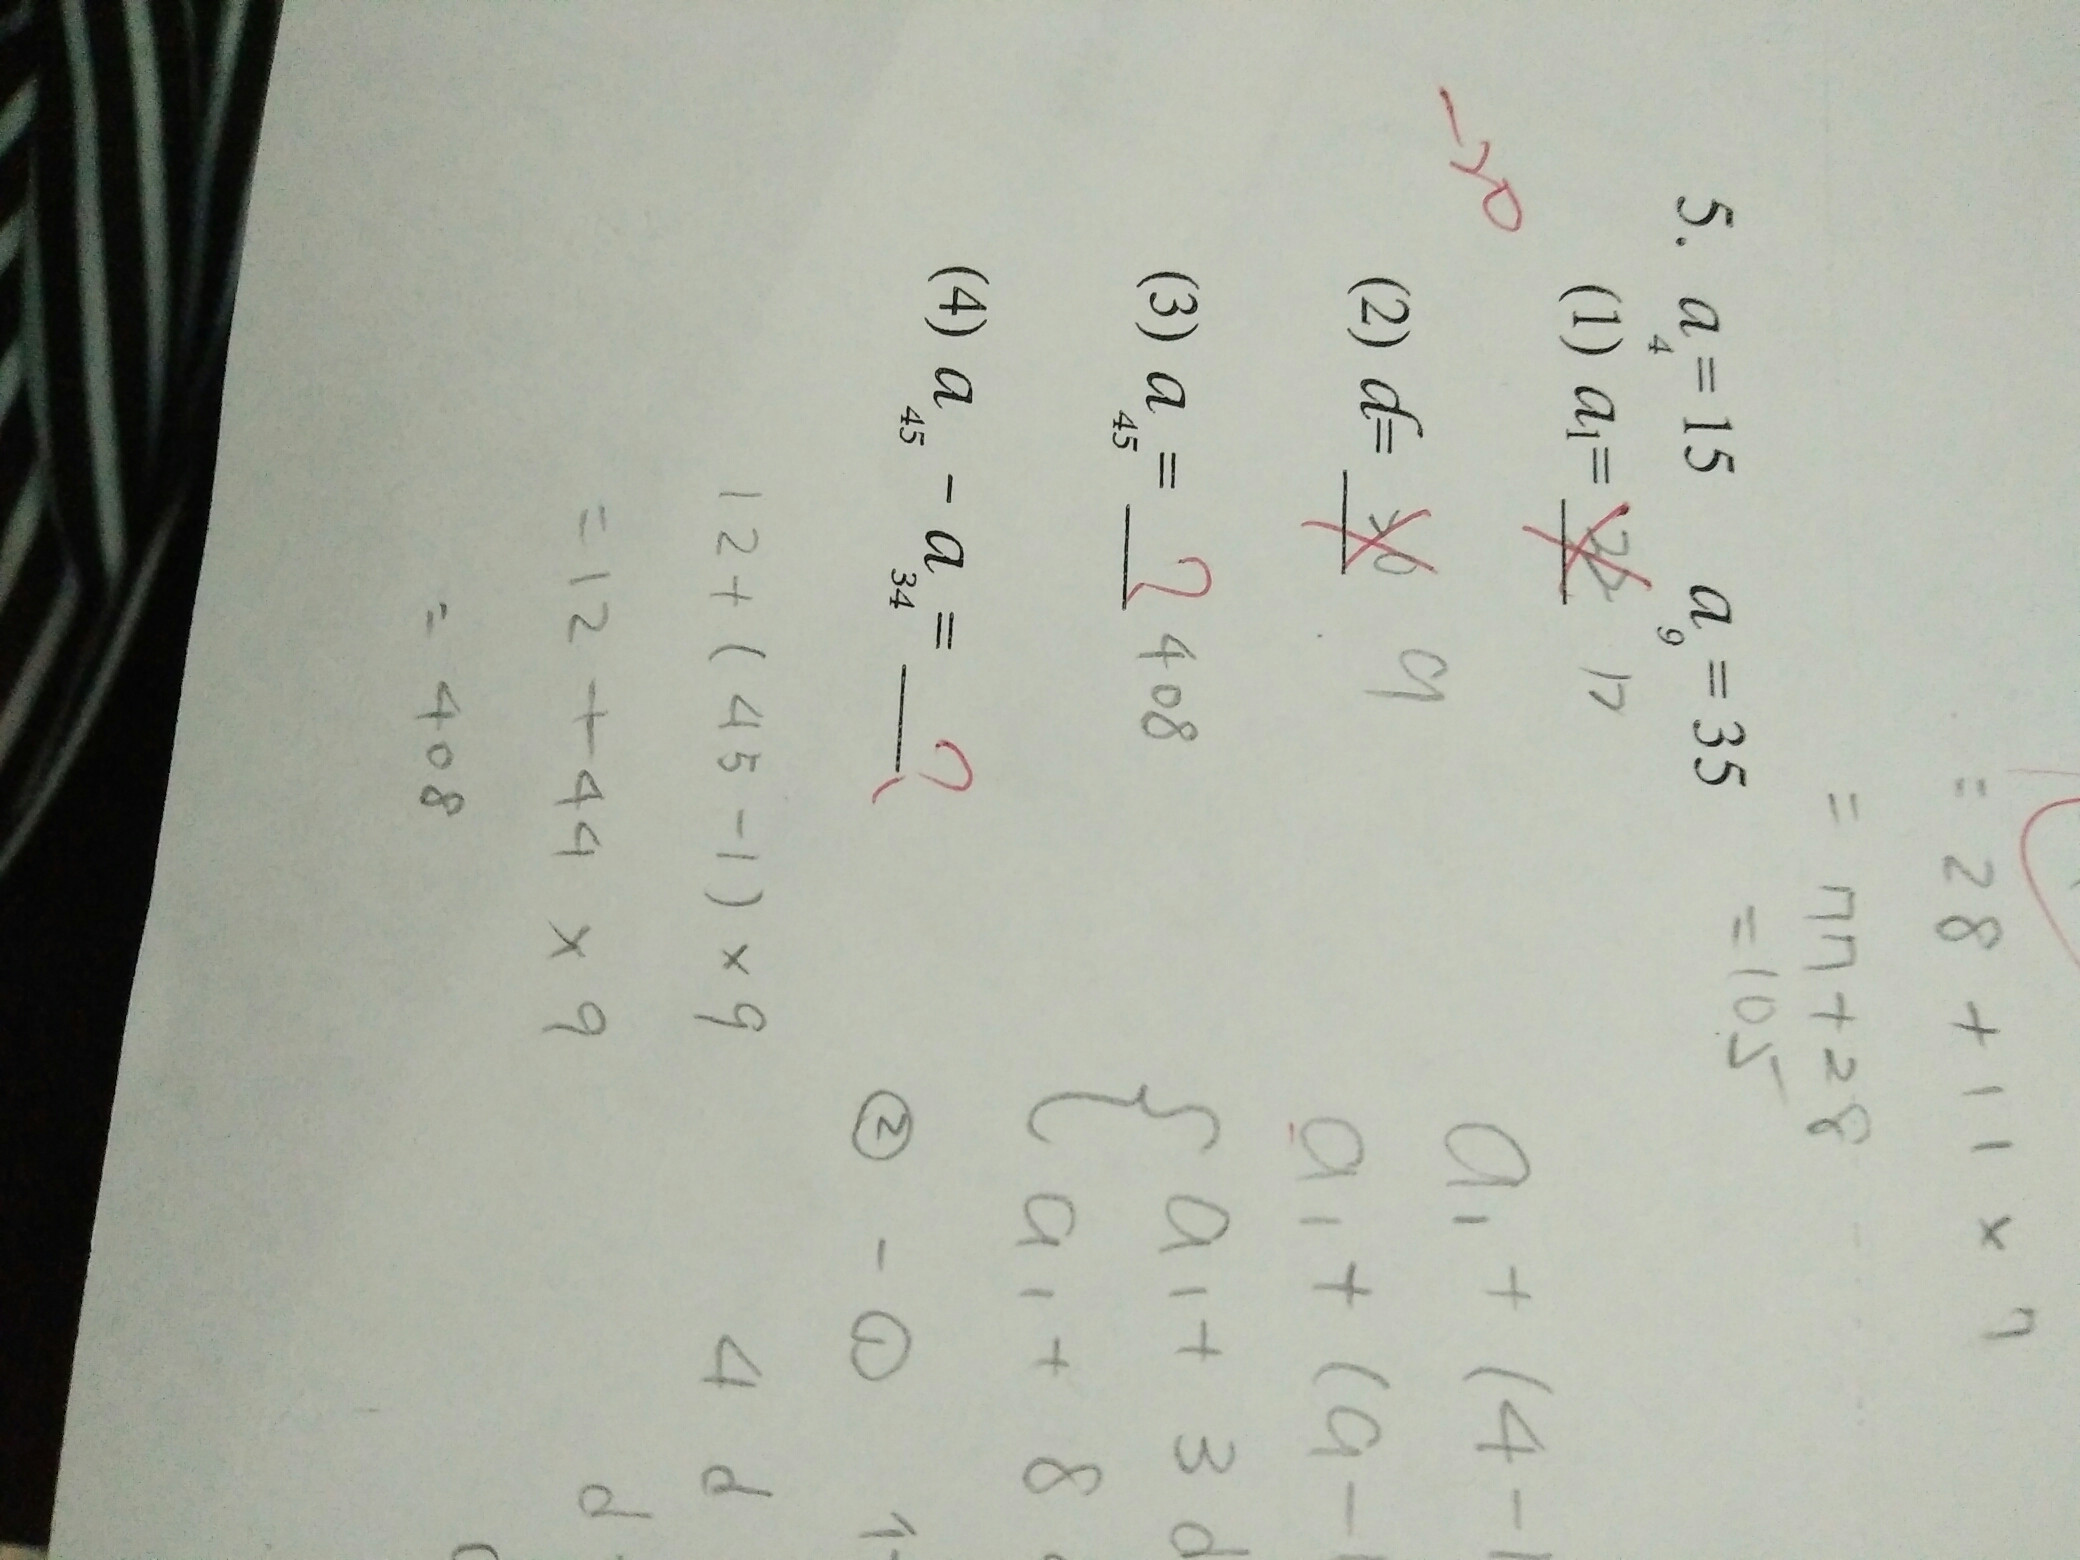 = 28 + 11 × 7
= 77 + 28
= 105
5. a₄ = 15 a₉ = 35
(1) a₁ = 12
-20
(2) d = 9
(3) a₄₅ = ? 408
(4) a₄₅ - a₃₄ = ?
12 + (45 - 1) × 9
= 12 + 44 × 9
= 408
a₁ + (4 - 1
a₁ + (9 - 1
{ a₁ + 3d
a₁ + 8
② - ①
4d
d